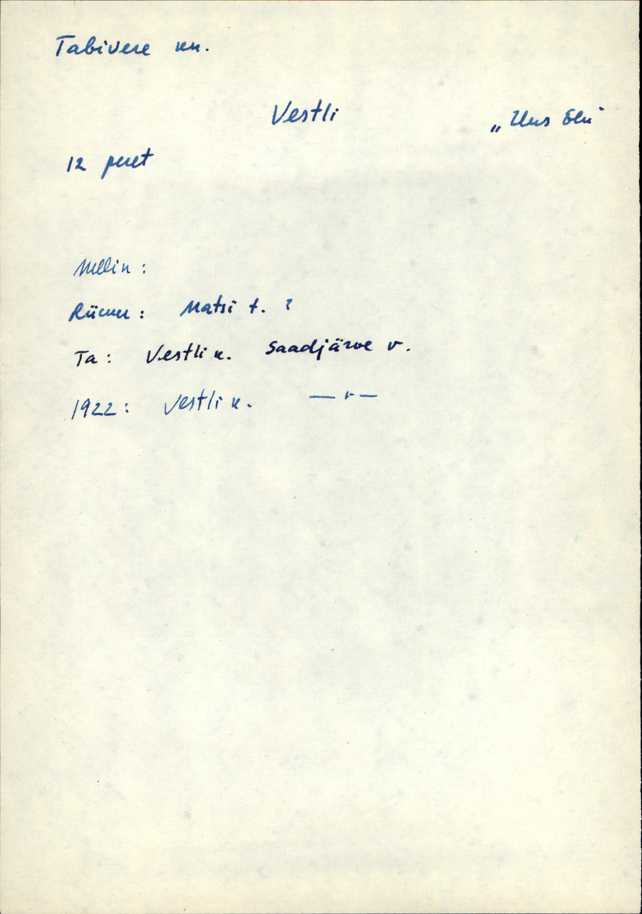 Tabivere kn.
Vestli „Uus Elu"
12 peret
Mellin:
Rücker: Matsi t. ?
Ta: Vestli k. Saadjärve v.
1922: Vestli k. — " —